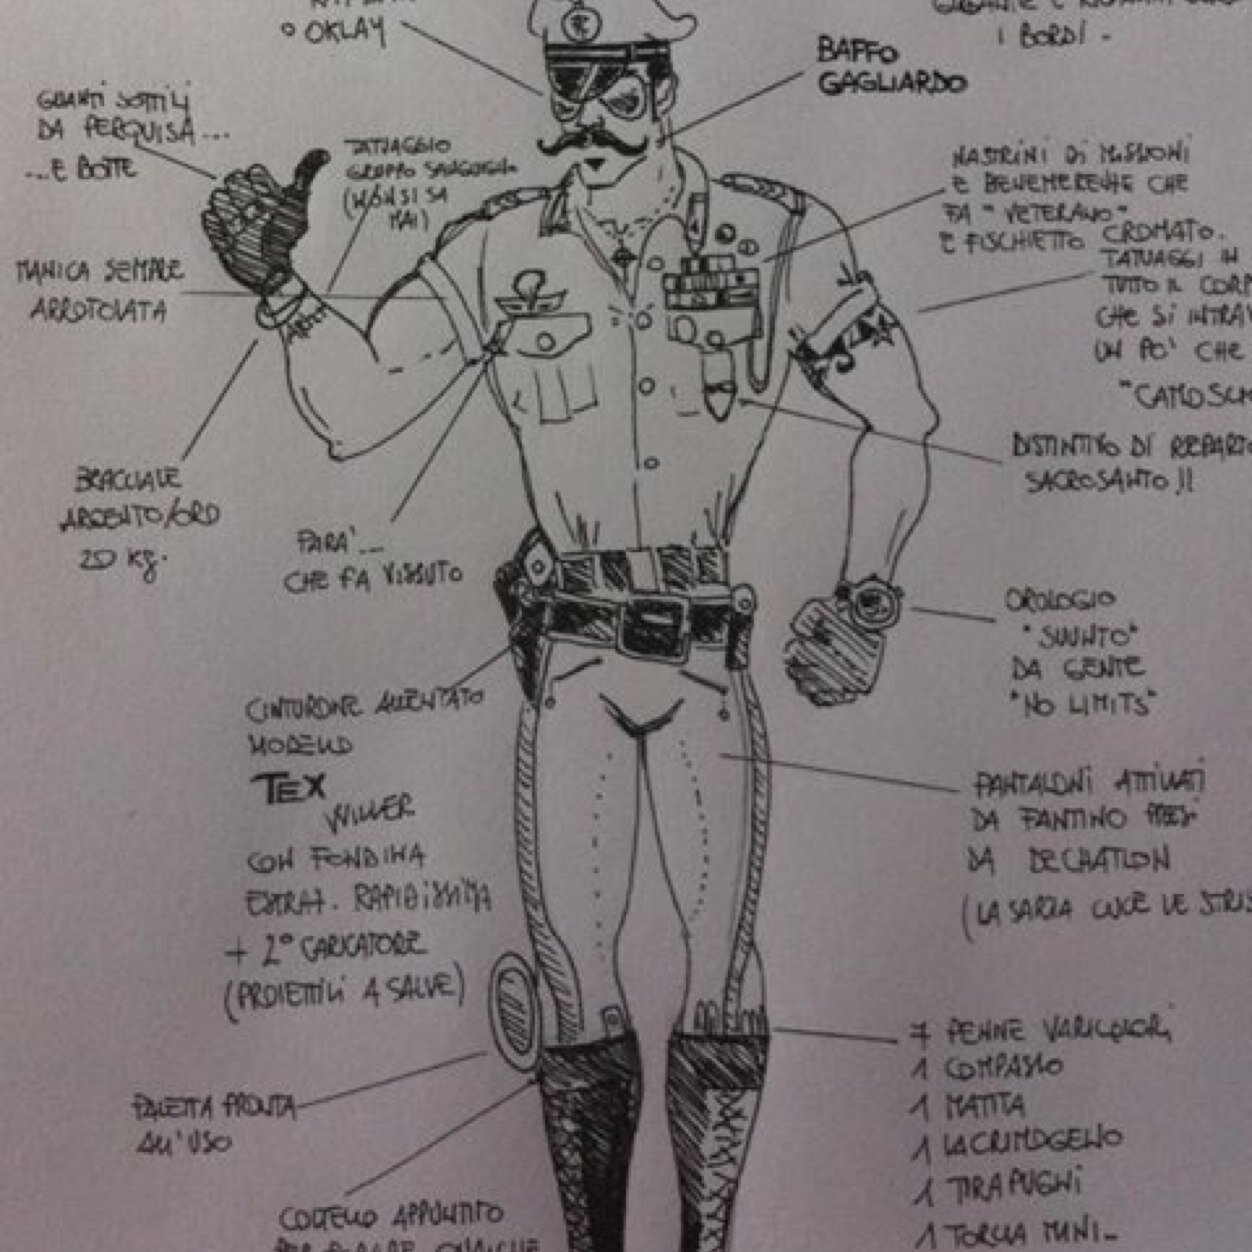 O OKLAY
I BORDI -
BAFFO
GAGLIARDO
GUANTI SOTTILI
DA PERQUISA...
...E BOTTE
TATUAGGIO
GRUPPO
(NON SI SA
MAI)
NASTRINI DI MISSIONI
E BENEMERENZE CHE
FA "VETERANO"
E FISCHIETTO CROMATO.
TATUAGGI IN
TUTTO IL
CHE SI
UN PO' CHE
MANICA SEMPRE
ARROTOLATA
DISTINTIVO DI
SACROSANTO!!
BRACCIALE
ARGENTO/ORO
20 Kg.
PARA'...
CHE FA VISSUTO
OROLOGIO
"SUUNTO"
DA GENTE
"NO LIMITS"
CINTURONE ALLENTATO
MODELLO
TEX
WILLER
CON FONDINA
ESTRAZ. RAPIDISSIMA
+ 2° CARICATORE
(PROIETTILI A SALVE)
PANTALONI ATTILLATI
DA FANTINO PRESI
DA DECHATLON
(LA SARTA CUCE LE
7 PENNE VARICOLORI
1 COMPASSO
1 MATITA
1 LACRIMOGENO
1 TIRAPUGNI
1 TORCIA MINI-
PALETTA PRONTA
ALL'USO
COLTELLO APPUNTITO